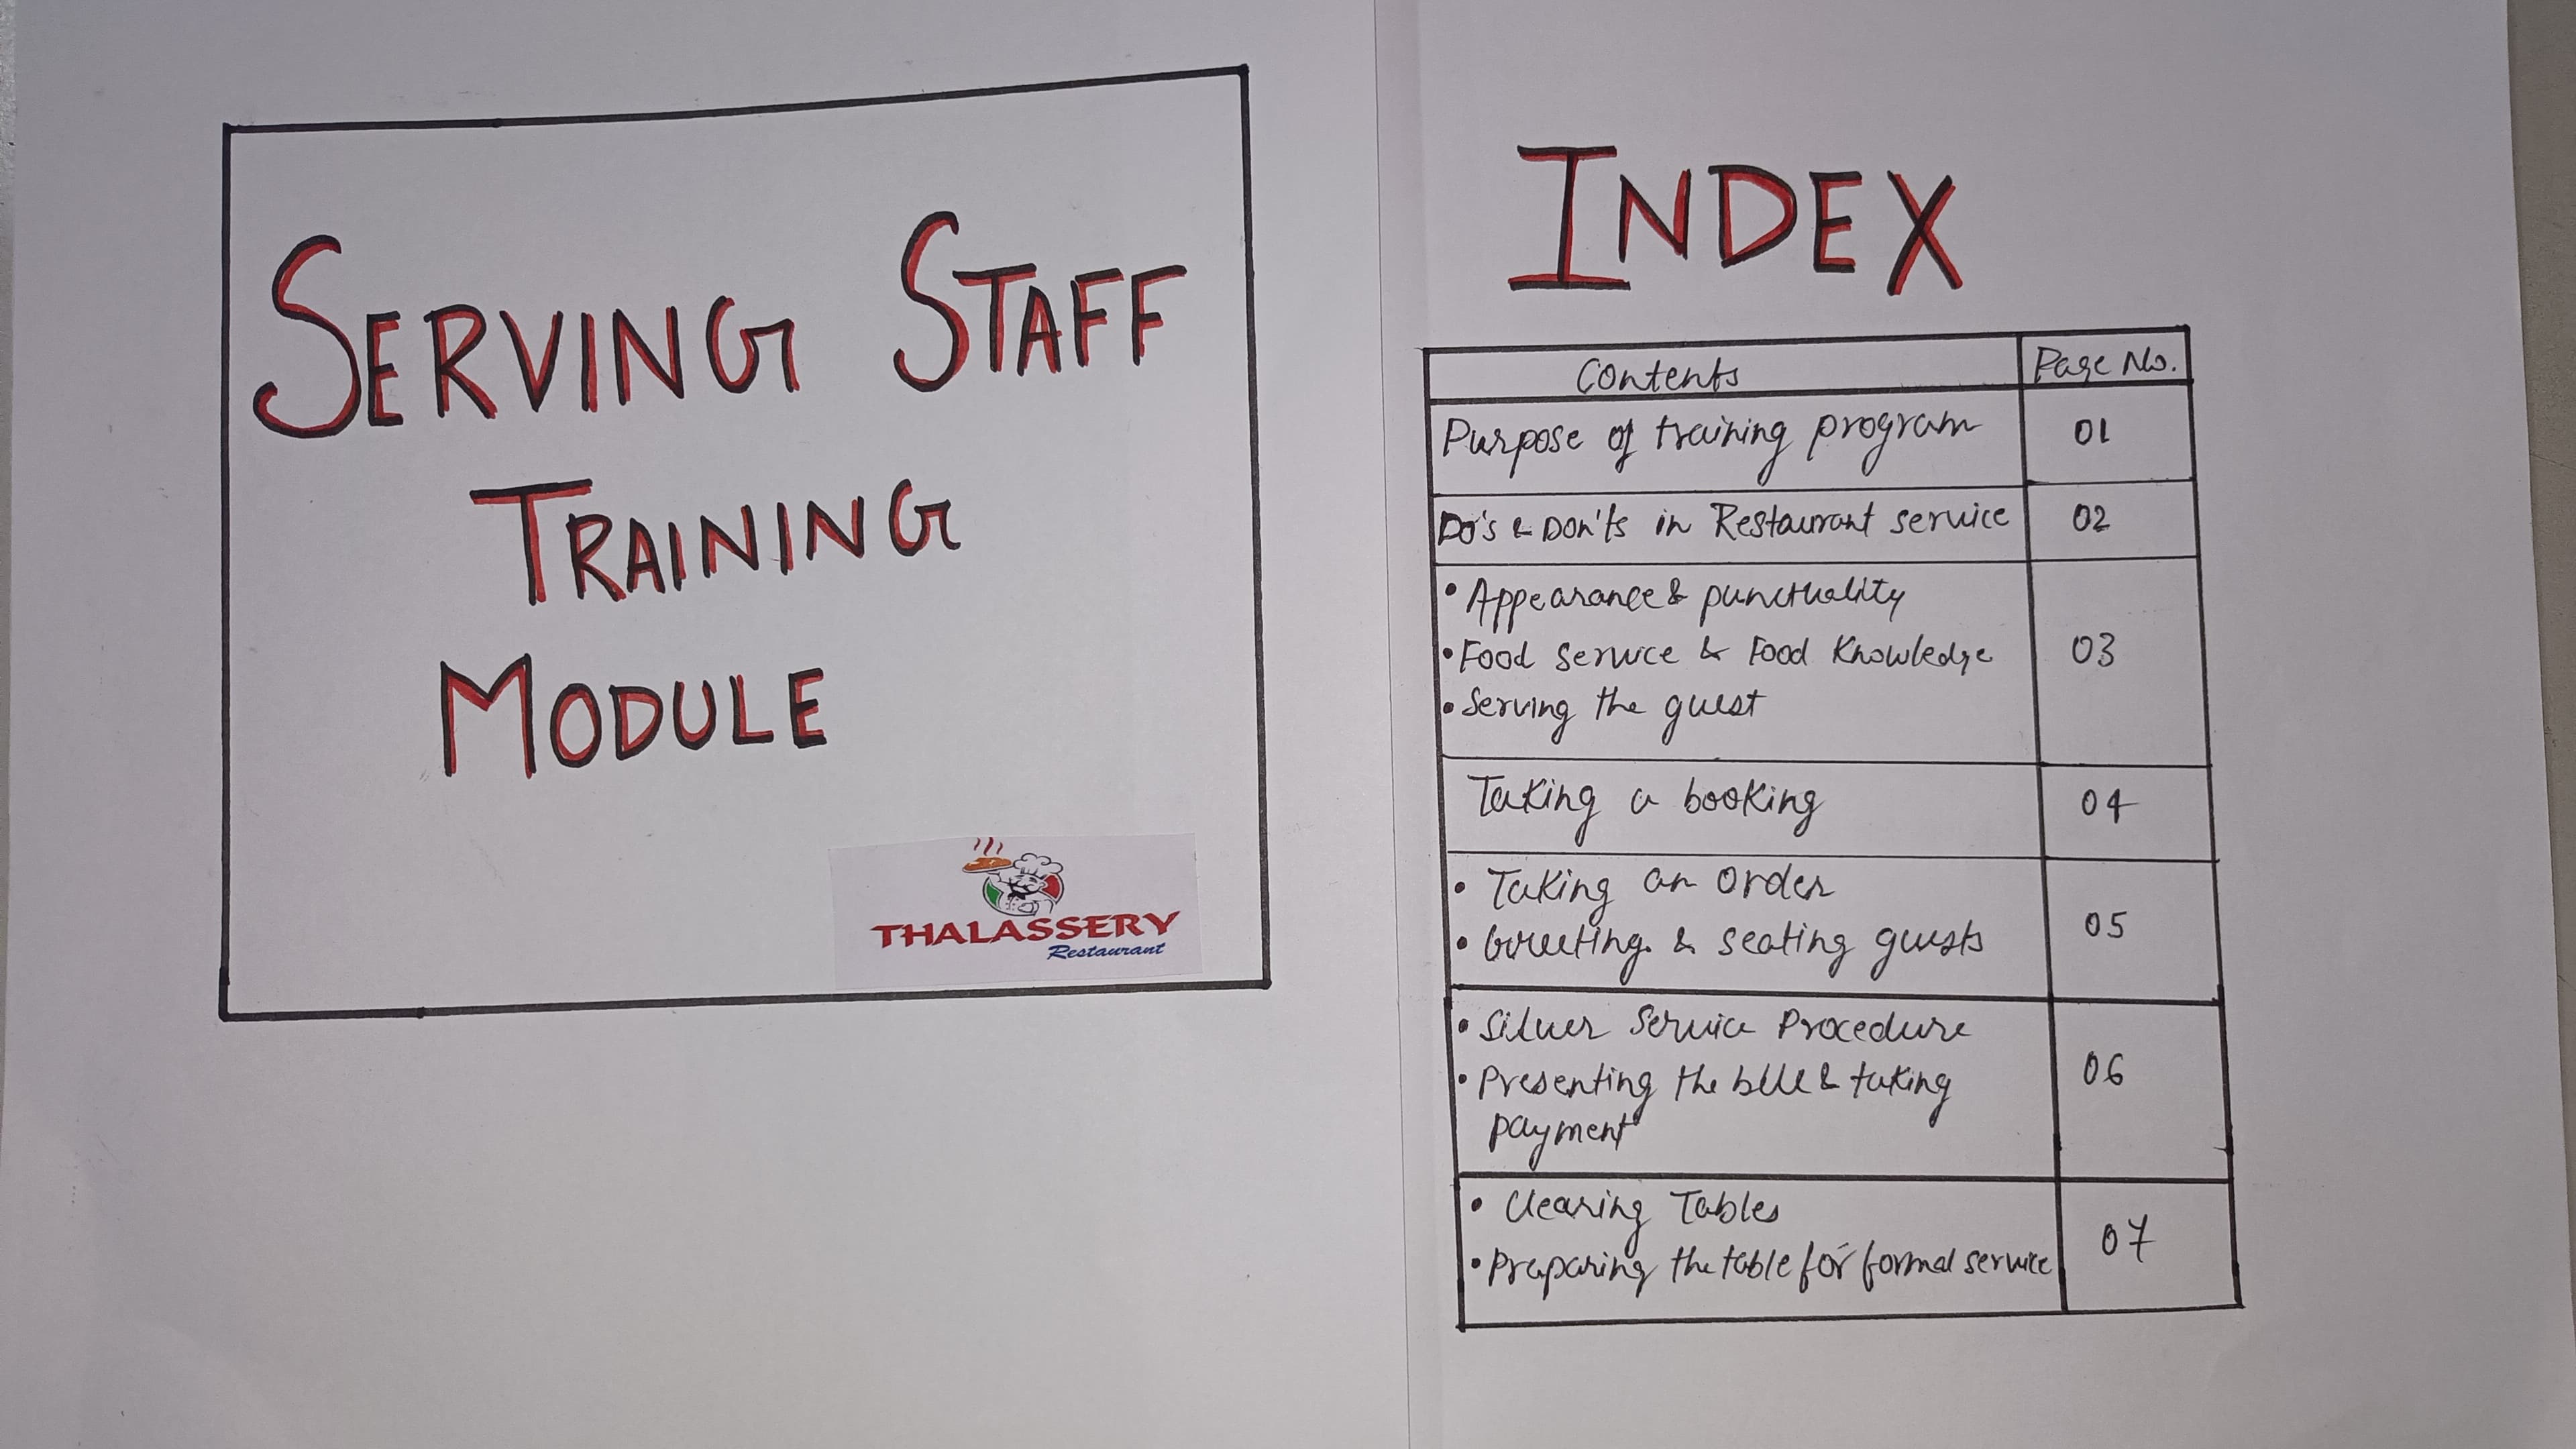 SERVING STAFF
TRAINING
MODULE
THALASSERY
Restaurant
INDEX
Contents Page No.
Purpose of training program 01
Do's & Don'ts in Restaurant service 02
• Appearance & punctuality
• Food service & Food Knowledge 03
• Serving the guest
Taking a booking 04
• Taking an order
• Greeting & seating guests 05
• Silver Service Procedure
• Presenting the bill & taking 06
payment
• Clearing Tables
• Preparing the table for formal service 07